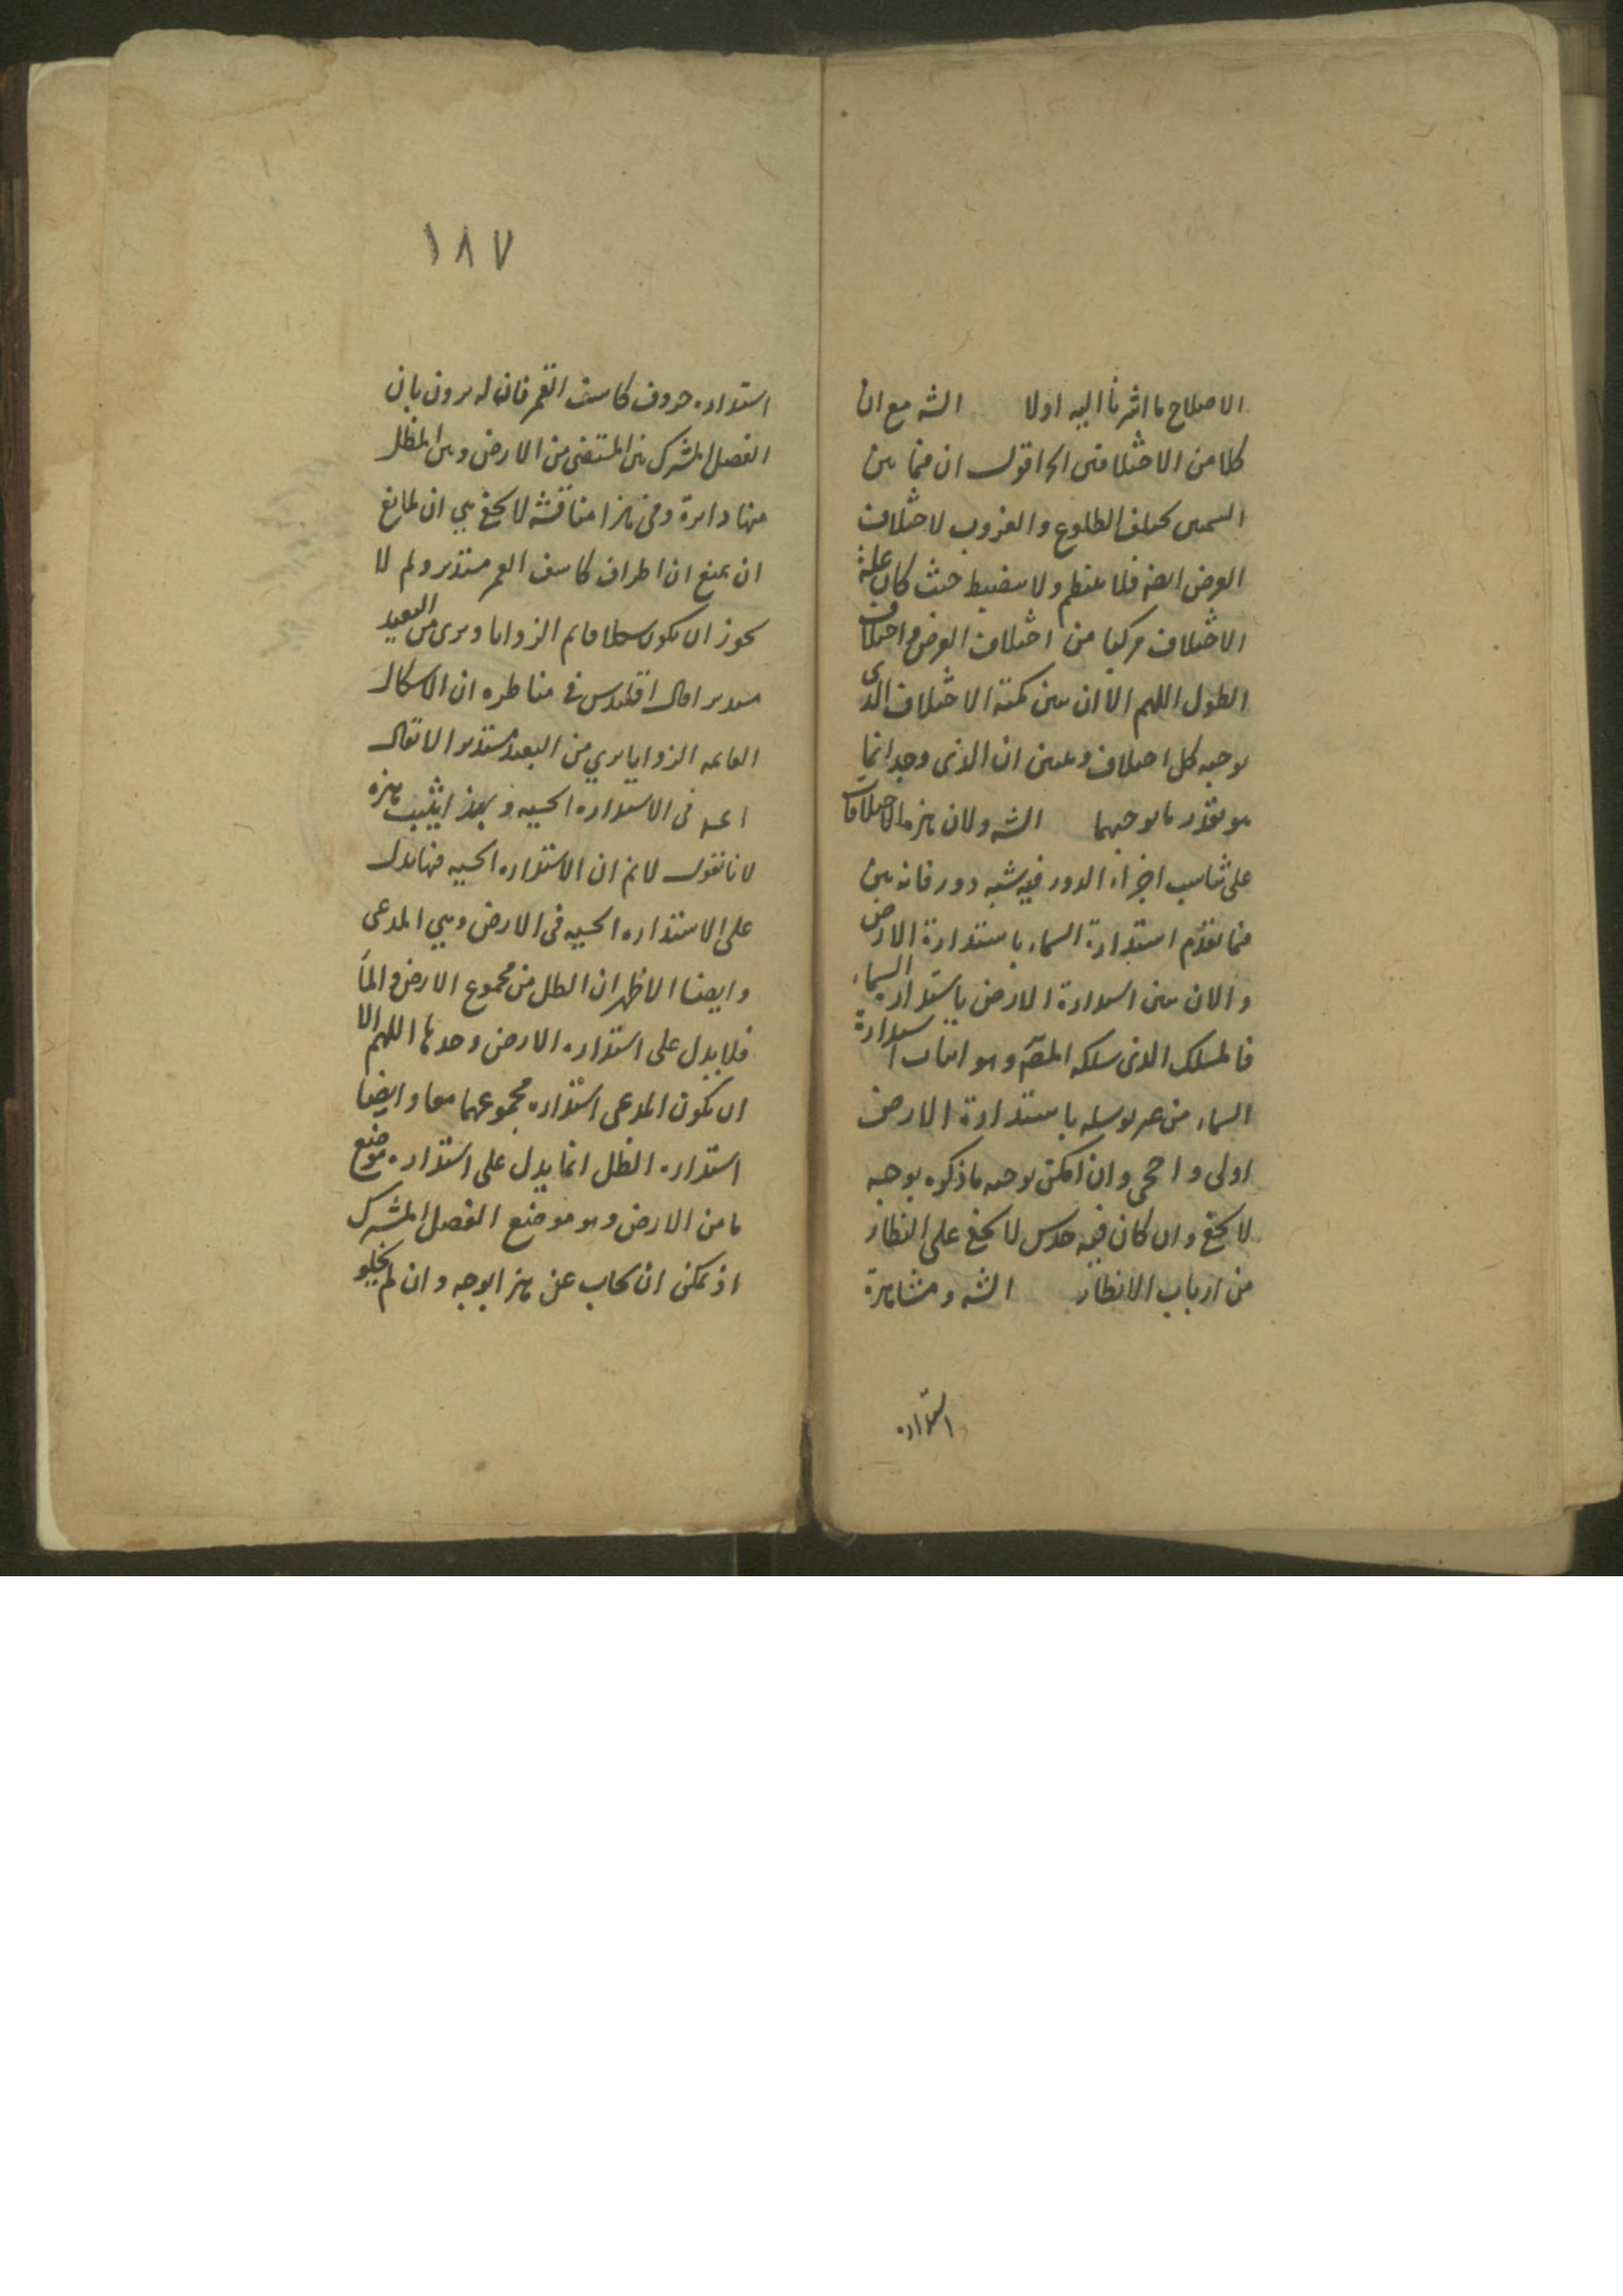 الاصلاح ما اشرنا اليه اولا الشه مع ان
كلا من الاختلافين الخ اقول ان فيما بين
السمتين يختلف الطلوع والغروب لاختلاف
العرض ايضا فلا ينتظم ولا ينضبط حيث كان علة
الاختلاف مركبا من اختلاف العرض واختلاف
الطول اللهم الا ان يبين كمية الاختلاف الذى
يوجبه كل اختلاف ويبين ان الذى وجد انما
هو بقدر ما يوجبهما الشه ولان هذه الاختلافات
على تناسب اجزاء الدور فيه شبه دور فانه بين
فيما تقدم استدارة السماء باستدارة الارض
والان يبين استدارة الارض باستدارة السماء
فالمسلك الذى سلكه المصّ وهو اثبات استدارة
السماء من غير توسله باستدارة الارض
اولى واحرى وان امكن توجيه ما ذكره بوجه
لا يخفى وان كان فيه حدس لا يخفى على النظار
من ارباب الانظار الشه ومشاهدة
استداره
١٨٧
استداره حروف كاسف القمر فان له يرون بان
الفصل المشترك بين المستضئ من الارض وبين المظلم
منها دايرة وفى هذا مناقشة لا يخفى هي ان لمانع
ان يمنع ان اطراف كاسف القمر مستدير ولم لا
يجوز ان يكون سطحا قايم الزوايا ويرى من البعيد
مستديرا قال اقليدس فى مناظره ان الاشكال
القايمه الزوايا يري من البعيد مستديرا لا يقال
فى الاستداره الحسيه وبهذا يثبت هذه
لانا نقول لانم ان الاستداره الحسيه فيها يدل
على الاستداره الحسيه فى الارض وهي المدعى
وايضا الاظهر ان الظل من مجموع الارض والماء
فلا يدل على استداره الارض وحدها اللهم الا
ان يكون المدعى استداره مجموعهما معا وايضا
استداره الظل انما يدل على استداره موضع
ما من الارض وهو موضع الفصل المشترك
اذ يمكن ان يجاب عن هذا بوجه وان لم يخلو